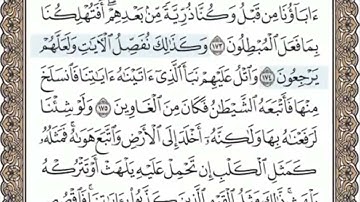 ءَابَآؤُنَا مِن قَبْلُ وَكُنَّا ذُرِّيَّةً مِّنۢ بَعْدِهِمْ ۖ أَفَتُهْلِكُنَا
بِمَا فَعَلَ ٱلْمُبْطِلُونَ ١٧٣ وَكَذَٰلِكَ نُفَصِّلُ ٱلْـَٔايَٰتِ وَلَعَلَّهُمْ
يَرْجِعُونَ ١٧٤ وَٱتْلُ عَلَيْهِمْ نَبَأَ ٱلَّذِىٓ ءَاتَيْنَٰهُ ءَايَٰتِنَا فَٱنسَلَخَ
مِنْهَا فَأَتْبَعَهُ ٱلشَّيْطَٰنُ فَكَانَ مِنَ ٱلْغَاوِينَ ١٧٥ وَلَوْ شِئْنَا
لَرَفَعْنَٰهُ بِهَا وَلَٰكِنَّهُۥٓ أَخْلَدَ إِلَى ٱلْأَرْضِ وَٱتَّبَعَ هَوَىٰهُ ۚ فَمَثَلُهُۥ
كَمَثَلِ ٱلْكَلْبِ إِن تَحْمِلْ عَلَيْهِ يَلْهَثْ أَوْ تَتْرُكْهُ
يَلْهَث ۚ ذَّٰلِكَ مَثَلُ ٱلْقَوْمِ ٱلَّذِينَ كَذَّبُوا۟ بِـَٔايَٰتِنَا ۚ فَٱقْصُصِ